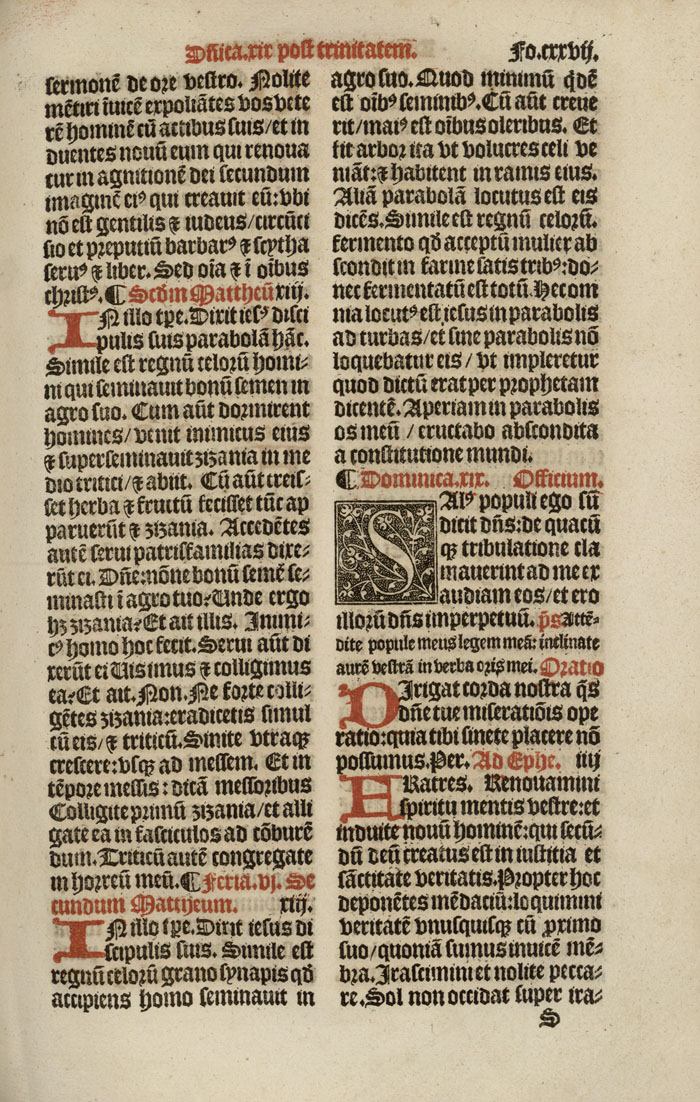 Dñica.xix post trinitatem. Fo.cxxvij.
sermonẽ de ore vestro. Nolite
mẽtiri īuicẽ expoliãtes vos vete
rẽ hominẽ cũ actibus suis/et in
duentes nouũ eum qui renoua
tur in agnitionẽ dei secundum
imaginẽ eiꝰ qui creauit eũ:vbi
nõ est gentilis ⁊ iudeus/circũci
sio et preputiũ barbarꝰ ⁊ scytha
seruꝰ ⁊ liber. Sed oĩa ⁊ ĩ oĩbus
christꝰ. ¶ Scd̃m Mattheũ xiij.
IN illo tp̃e. Dixit iesꝰ disci
pulis suis parabolã hãc.
Simile est regnũ celorũ homi⸗
ni qui seminauit bonũ semen in
agro suo. Cum aũt dormirent
homines/venit inimicus eius
⁊ superseminauit zizania in me
dio tritici/⁊ abiit. Cũ aũt creis⸗
set herba ⁊ fructũ fecisset tũc ap
paruerũt ⁊ zizania. Accedẽtes
autẽ serui patrisfamilias dixe⸗
rũt ei. Dñe:nõne bonũ semẽ se⸗
minasti ĩ agro tuo? Unde ergo
hꝫ zizania? Et ait illis. Inimi⸗
cꝰ homo hoc fecit. Serui aũt di
xerũt ei Uis imus ⁊ colligimus
ea? Et ait. Non. Ne forte colli⸗
gẽtes zizania:eradicetis simul
cũ eis/⁊ triticũ. Sinite vtraqꝫ
crescere:vsqꝫ ad messem. Et in
tẽpore messis: dicã messoribus
Colligite primũ zizania/et alli
gate ea in fasciculos ad cõburẽ
dum. Triticũ autẽ congregate
in horreũ meũ. ¶ Feria.vj. Se
cundum Mattheum. xiij.
IN illo tp̃e. Dixit iesus di
scipulis suis. Simile est
regnũ celorũ grano synapis qd̃
accipiens homo seminauit in
agro suo. Quod minimũ q̃dẽ
est oĩbꝰ seminibꝰ. Cũ aũt creue
rit/maiꝰ est oĩbus oleribus. Et
fit arbor ita vt volucres celi ve
niãt:⁊ habitent in ramis eius.
Aliã parabolã locutus est eis
dicẽs. Simile est regnũ celorũ.
fermento qd̃ acceptũ mulier ab
scondit in farine satis tribꝰ:do⸗
nec fermentatũ est totũ. Hec om
nia locutꝰ est iesus in parabolis
ad turbas/et sine parabolis nõ
loquebatur eis/ vt impleretur
quod dictũ erat per prophetam
dicentẽ. Aperiam in parabolis
os meũ / eructabo abscondita
a constitutione mundi.
¶ Dominica.xix. Officium.
SAlꝰ populi ego sũ
dicit dñs:de quacũ
qꝫ tribulatione cla
mauerint ad me ex
audiam eos/et ero
illorũ dñs imperpetuũ. p̃s Attẽ⸗
dite popule meus legem meã: inclinate
aurẽ vestrã in verba oris mei. Oratio
DIrigat corda nostra q̃s
dñe tue miseratiõis ope
ratio:quia tibi sinete placere nõ
possumus. Per. Ad Ephe. iiij
FRatres. Renouamini
spiritu mentis vestre:et
induite nouũ hominẽ:qui secũ⸗
dũ deũ creatus est in iustitia et
sãctitate veritatis. Propter hoc
deponẽtes mẽdaciũ:loquimini
veritatẽ vnusquisqꝫ cũ ꝓximo
suo/quoniã sumus inuicẽ mẽ⸗
bra. Irascimini et nolite pecca⸗
re. Sol non occidat super ira⸗
S